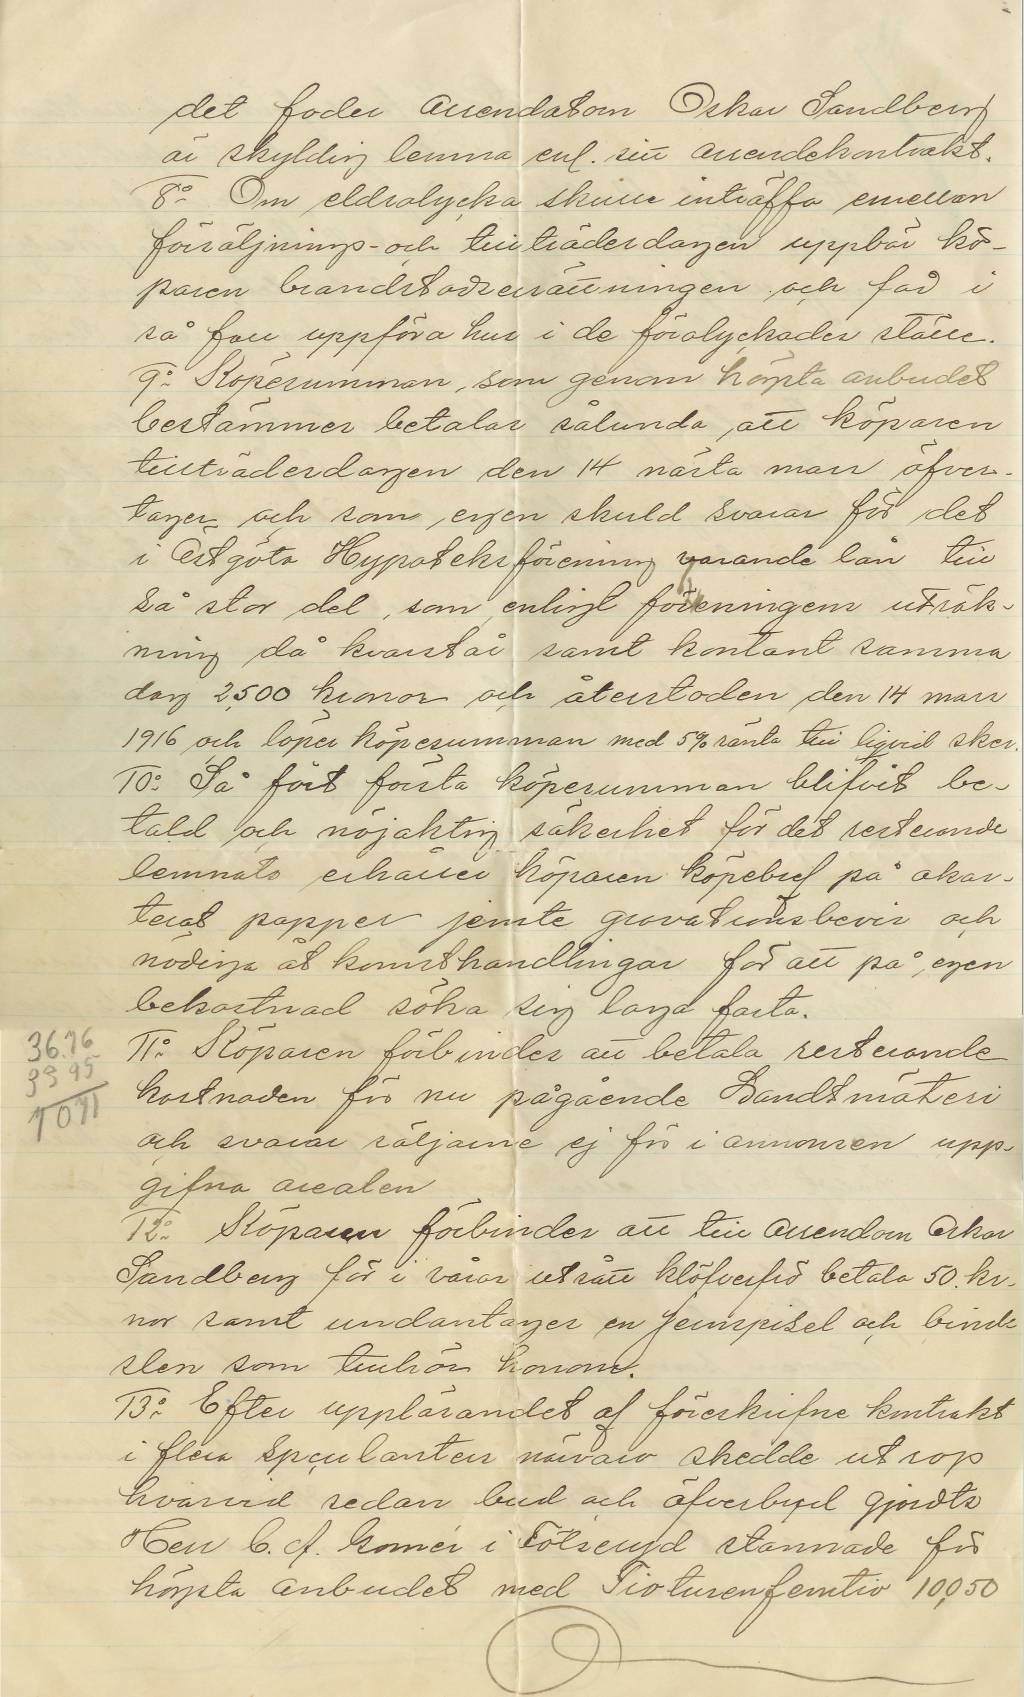 det foder arrendatorn Oskar Sandberg
är skyldig lemna enl. sitt arrendekontrakt.
8o: Om eldsolycka skulle inträffa emellan
försäljnings- och tillträdesdagen uppbär kö-
paren brandstodsersättningen och får i
så fall uppföra hus i de förolyckades ställe.
9o: Köpesumman, som genom högsta anbudet
bestämmes betalas sålunda, att köparen
tillträdesdagen den 14 nästa mars öfver-
tager och som egen skuld svarar för det
i Östgöta Hypoteksförening varande lån till
så stor del, som enligt föreningens uträk-
ning då kvarstår samt kontant samma
dag 2,500 kronor och återstoden den 14 mars
1916 och löper köpesumman med 5% ränta till liqvid sker.
10o: Så fort första köpesumman blifvit be-
tald och nöjaktig säkerhet för det resterande
lemnats erhåller köparen köpebref på okar-
terat papper jemte gravationsbevis och
nödiga åtkomsthandlingar för att på egen
bekostnad söka sig laga fasta.
11o: Köparen förbinder att betala resterande
kostnaden för nu pågående Landtmäteri
och svarar säljarne ej för i annonsen upp-
gifna arealen
36.76
33 95
7071
12o: Köparen förbinder att till arrendorn Oskar
Sandberg för i våras utsått klöfverfrö betala 50. kr-
nor samt undantages en jernspisel och bind-
slen som tillhör honom.
13o: Efter uppläsandet af föreskrifne kontrakt
i flera spekulanters närvaro skedde utrop
hvarvid sedan bud och öfverbud gjordts
Herr C. A. Gomér i Fölseryd stannade för
högsta anbudet med Tiotusenfemtio 10,050